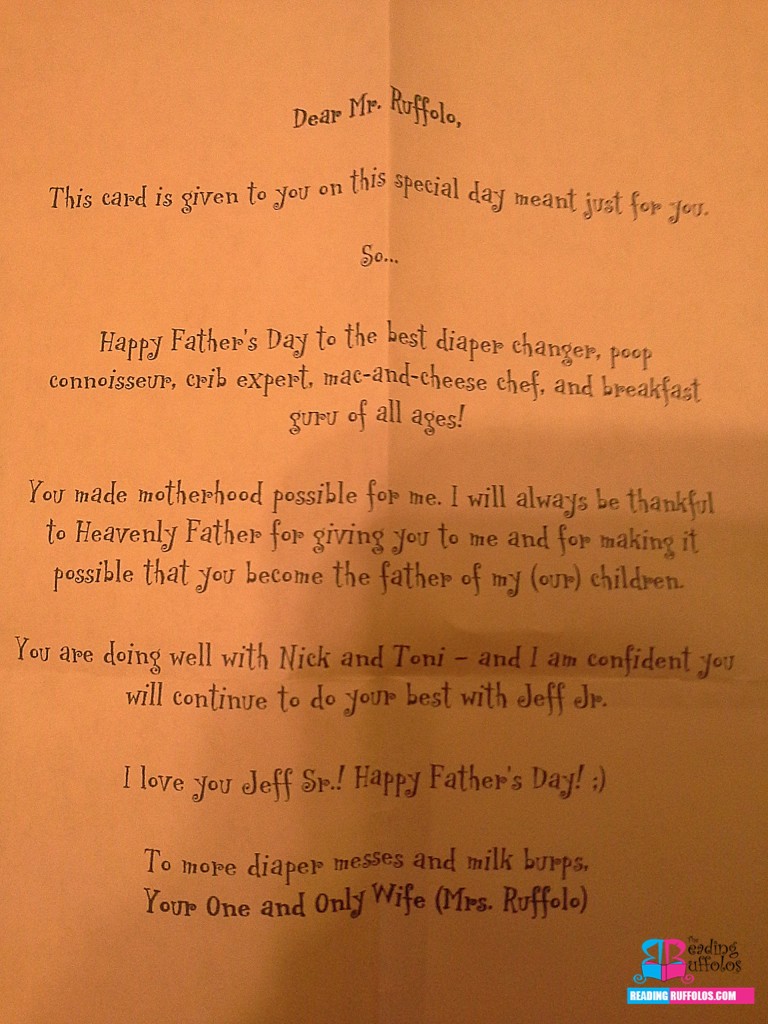 Dear Mr. Ruffolo,
This card is given to you on this special day meant just for you.
So...
Happy Father's Day to the best diaper changer, poop
connoisseur, crib expert, mac-and-cheese chef, and breakfast
guru of all ages!
You made motherhood possible for me. I will always be thankful
to Heavenly Father for giving you to me and for making it
possible that you become the father of my (our) children.
You are doing well with Nick and Toni – and I am confident you
will continue to do your best with Jeff Jr.
I love you Jeff Sr.! Happy Father's Day! ;)
To more diaper messes and milk burps,
Your One and Only Wife (Mrs. Ruffolo)
The
Reading
Ruffolos
READING RUFFOLOS.COM